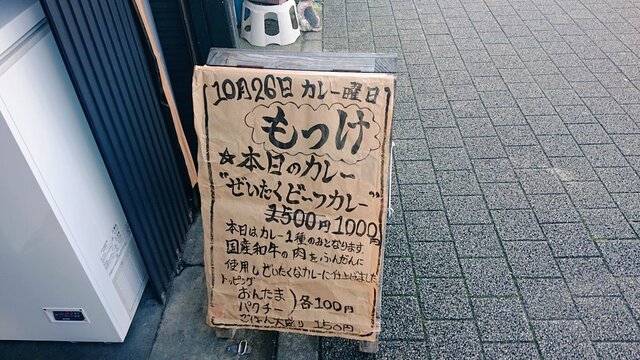 10月26日 カレー曜日
もっけ
☆本日のカレー
"ぜいたくビーフカレー"
1500円 1000円
本日はカレー1種のみとなります
国産和牛の肉をふんだんに
使用しぜいたくなカレーに仕上げました
トッピング
おんたま
パクチー
各100円
ごはん大盛り 150円